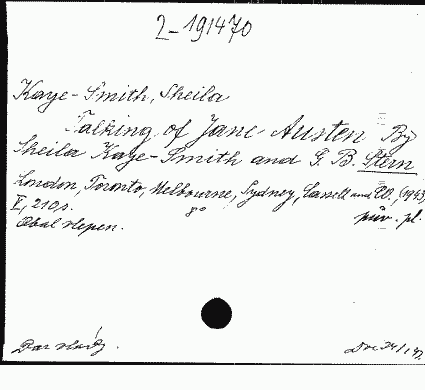 2-191470
Kaye-Smith, Sheila
Talking of Jane Austen By
Sheila Kaye-Smith and G. B. Stern
London, Toronto, Melbourne, Sydney, Cassell and Co. (1943)
X, 210 s. 8° pův. pl.
Obal slepen.
Dar